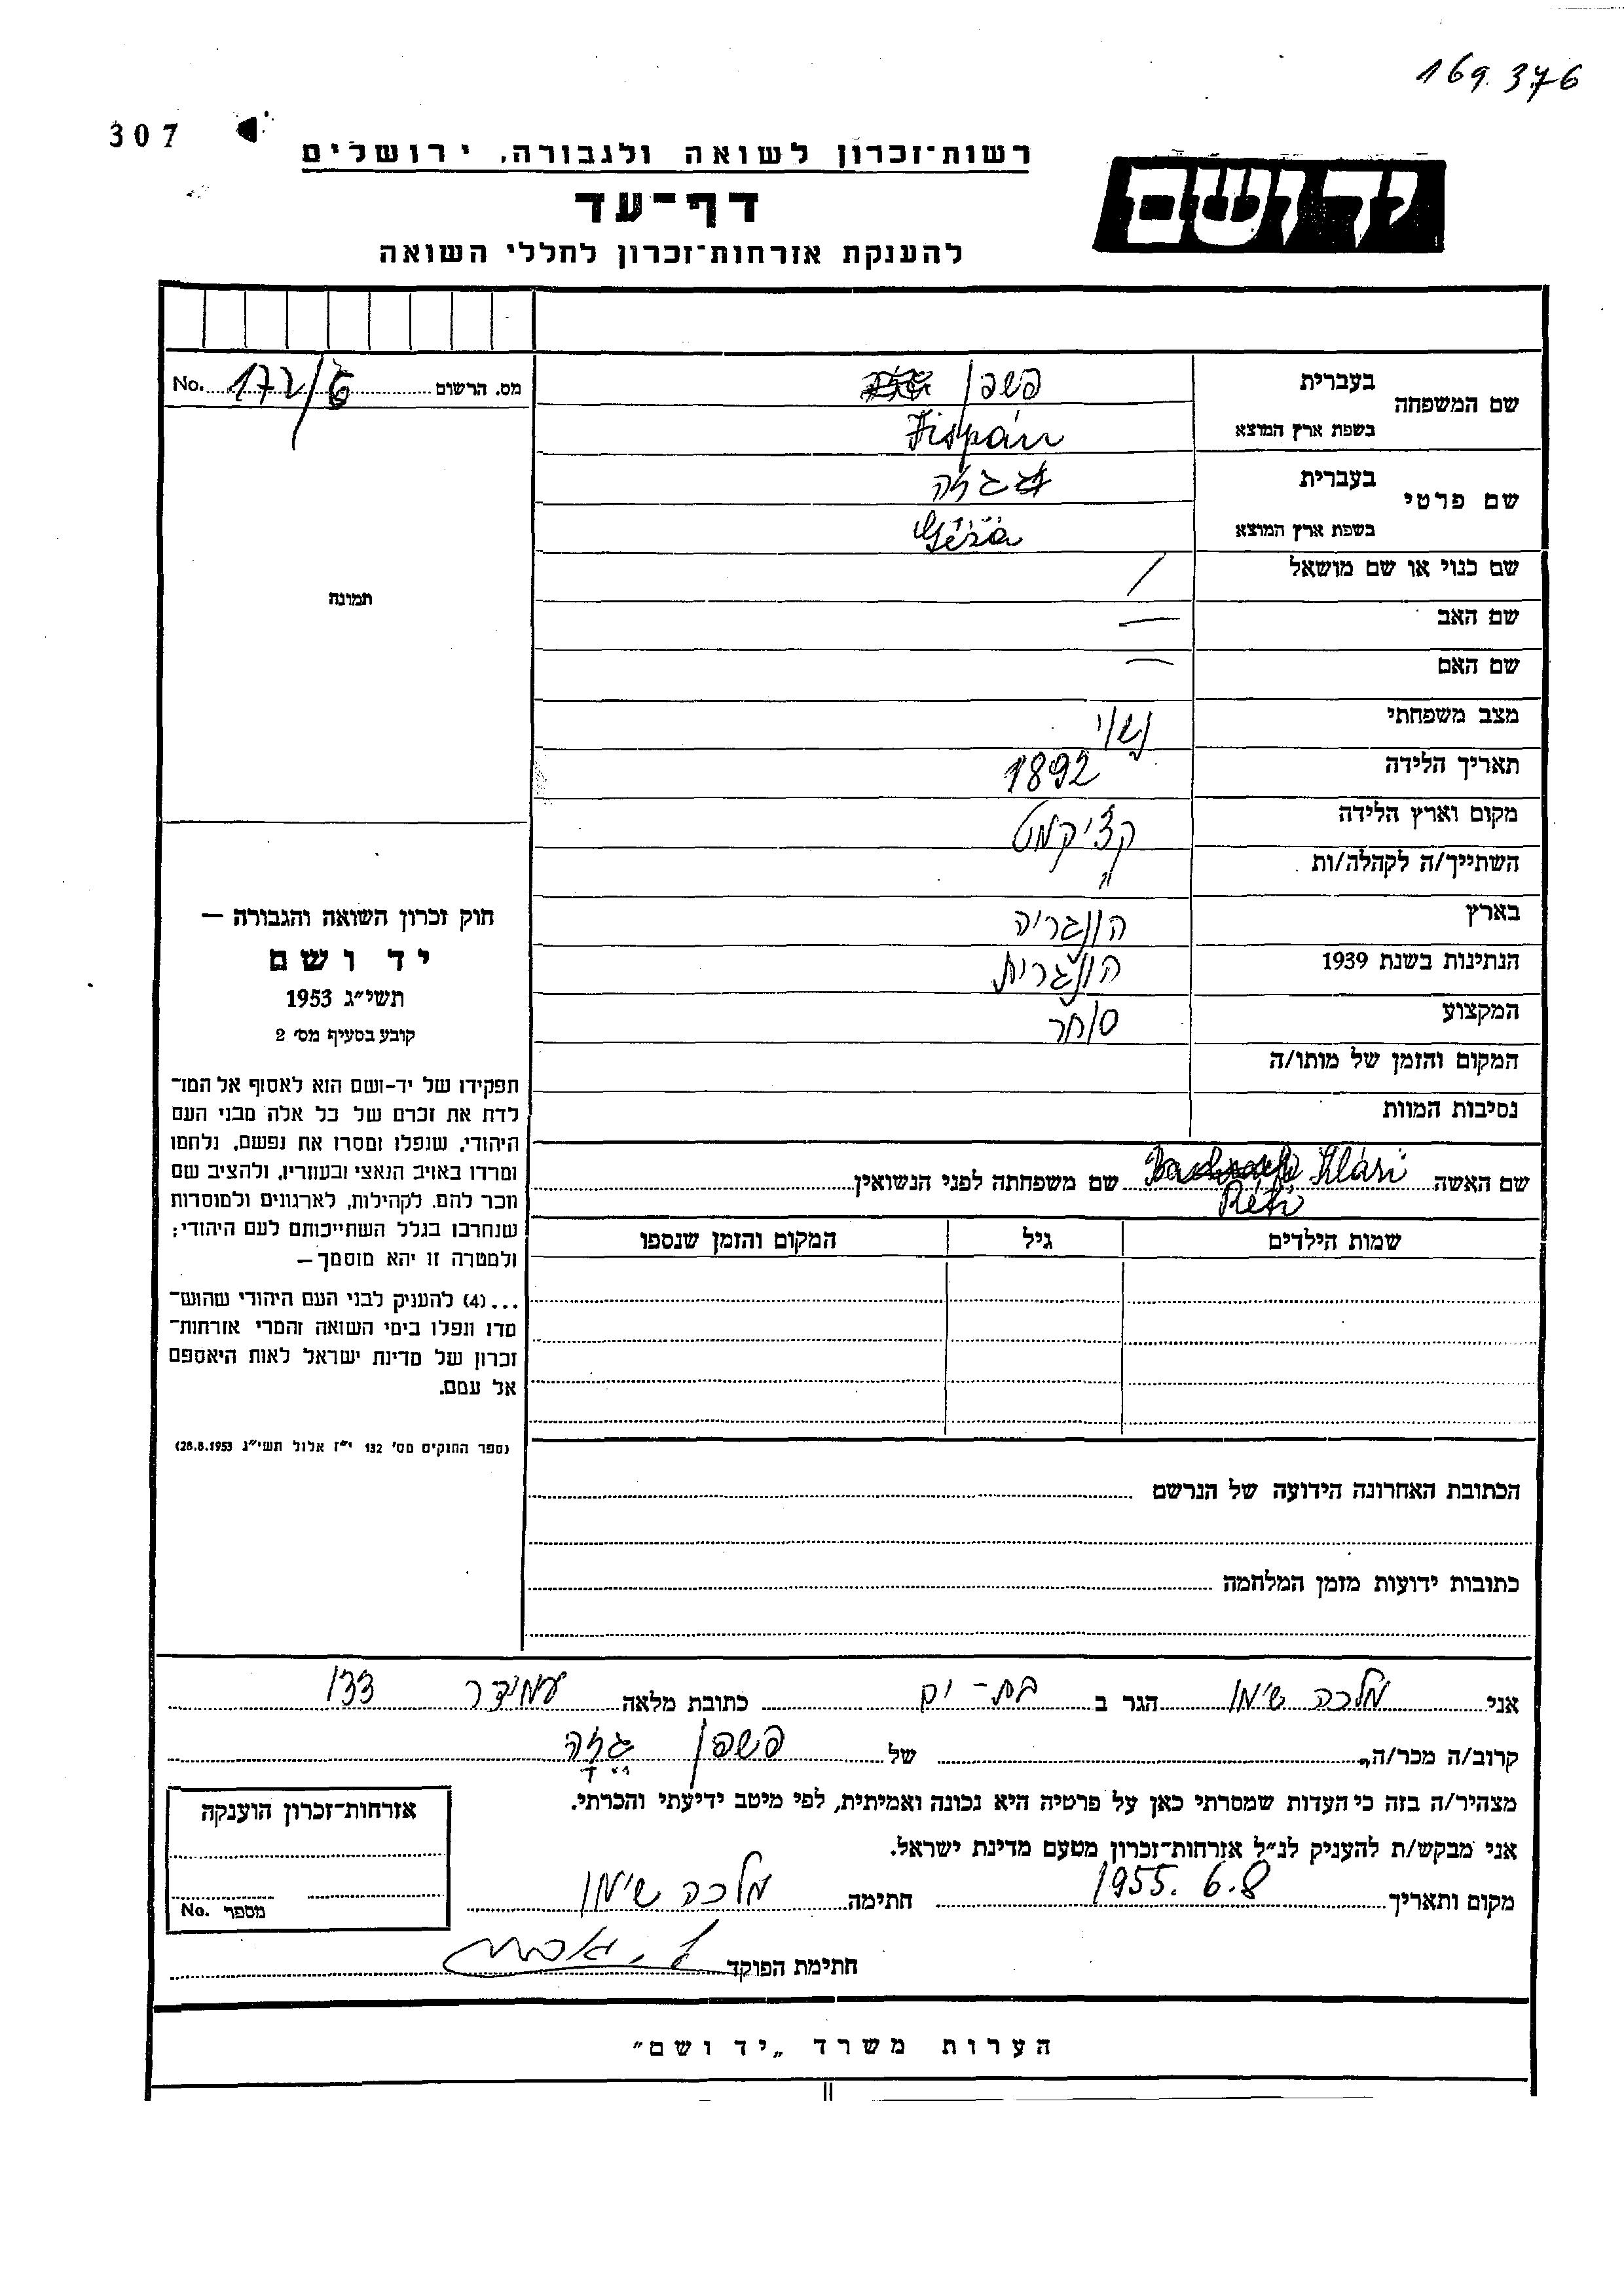 169.376
307
רשות־זכרון לשואה ולגבורה, ירושלים
יד ושם
דף־עד
להענקת אזרחות־זכרון לחללי השואה
מס. הרשום 172/6 No.
שם המשפחה
בעברית פשפן
בשפת ארץ המוצא Fispán
שם פרטי
בעברית גזה
בשפת ארץ המוצא Géza
שם כנוי או שם מושאל /
שם האב —
שם האם —
מצב משפחתי נשוי
תאריך הלידה 1892
מקום וארץ הלידה קצ'יקמט
השתייך/ה לקהלה/ות "
בארץ הונגריה
הנתינות בשנת 1939 הונגרית
המקצוע סוחר
המקום והזמן של מותו/ה
נסיבות המוות
שם האשה Klári שם משפחתה לפני הנשואין
Réti
שמות הילדים גיל המקום והזמן שנספו
הכתובת האחרונה הידועה של הנרשם
כתובות ידועות מזמן המלחמה
תמונה
חוק זכרון השואה והגבורה —
יד ושם
תשי״ג 1953
קובע בסעיף מס׳ 2
תפקידו של יד-ושם הוא לאסוף אל המו־
לדת את זכרם של כל אלה מבני העם
היהודי, שנפלו ומסרו את נפשם, נלחמו
ומרדו באויב הנאצי ובעוזריו, ולהציב שם
וזכר להם, לקהילות, לארגונים ולמוסדות
שנחרבו בגלל השתייכותם לעם היהודי;
ולמטרה זו יהא מוסמך—
...(4) להעניק לבני העם היהודי שהוש־
מדו ונפלו בימי השואה והמרי אזרחות־
זכרון של מדינת ישראל לאות היאספם
אל עמם.
(ספר החוקים מס׳ 132 י״ז אלול תשי״ג 28.8.1953)
אני מלכה שימן הגר ב בת-ים כתובת מלאה עמידר 133
קרוב/ה מכר/ה של פשפן גזה
מצהיר/ה בזה כי העדות שמסרתי כאן על פרטיה היא נכונה ואמיתית, לפי מיטב ידיעתי והכרתי.
אני מבקש/ת להעניק לנ״ל אזרחות־זכרון מטעם מדינת ישראל.
מקום ותאריך 1955.6.8 חתימה מלכה שימן
חתימת הפוקד
אזרחות־זכרון הוענקה
מספר No.
הערות משרד „יד ושם״